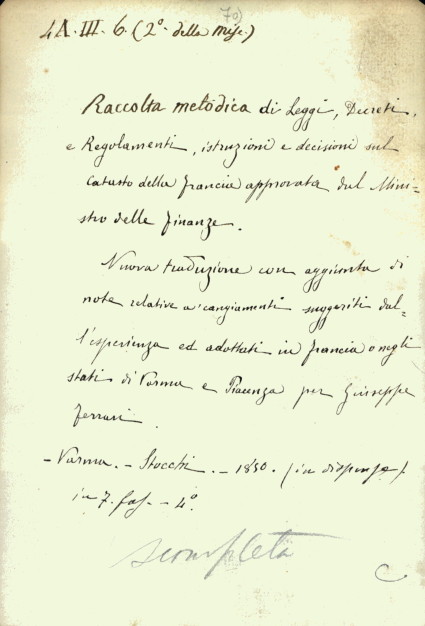 70
4 A. III. 6. (2º. della Misc.)
Raccolta metodica di Leggi, Decreti,
e Regolamenti, istruzioni e decisioni sul
Catasto della Francia approvata dal Mini=
stro delle Finanze.
Nuova traduzione con aggiunta di
note relative a' cangiamenti suggeriti dal=
l'esperienza ed adottati in Francia o negli
stati di Parma e Piacenza per Giuseppe
Ferrari.
- Parma. - Stocchi. - 1830. (in dispense)
in 7. fas. - 4º.
scompleta
C